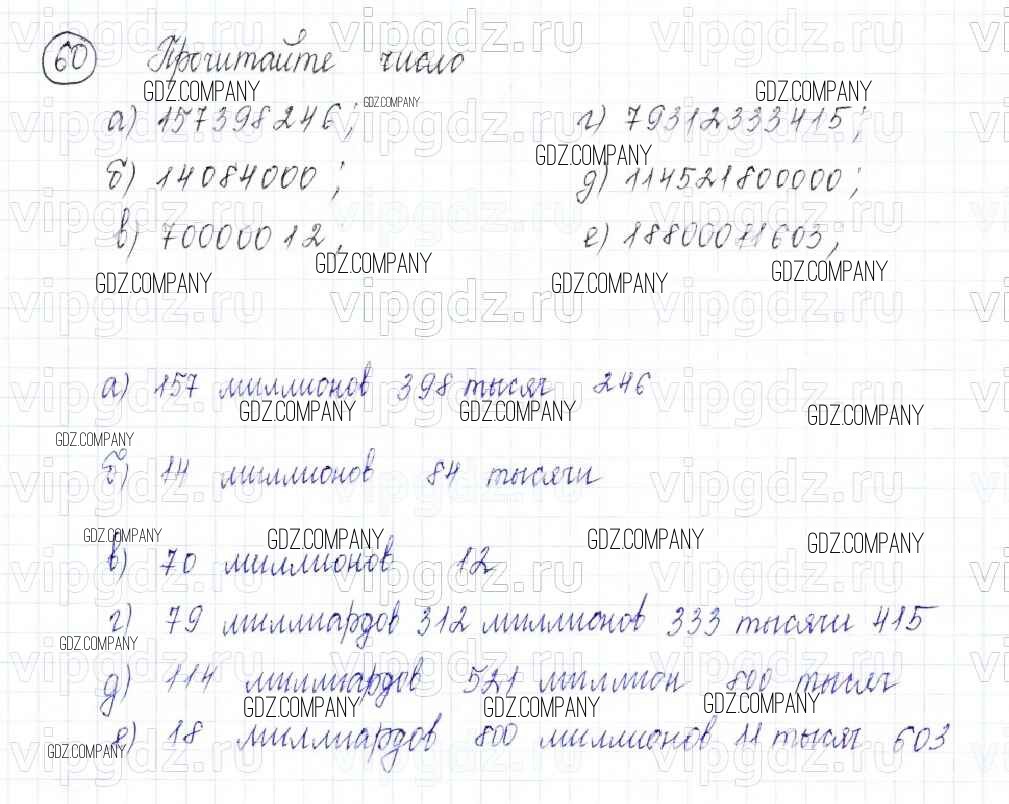 60 Прочитайте число
а) 157398246; г) 79312333415;
б) 14084000; д) 114521800000;
в) 70000012; е) 18800011603;
а) 157 миллионов 398 тысяч 246
б) 14 миллионов 84 тысячи
в) 70 миллионов 12
г) 79 миллиардов 312 миллионов 333 тысячи 415
д) 114 миллиардов 521 миллион 800 тысяч
е) 18 миллиардов 800 миллионов 11 тысяч 603
vipgdz.ru
GDZ.COMPANY